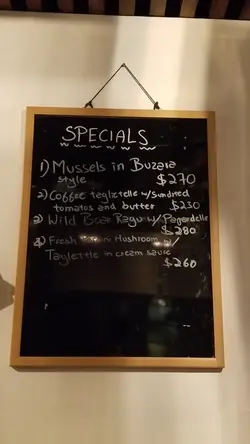 SPECIALS
1) Mussels in Buzara
style $270
2) Coffee tagliztelle w/ Sundried
tomatos and butter $230
3) Wild Boar Ragu w/ Papardelle
$280
4) Fresh Mushroom w/
Taglettle in cream sauce
$260